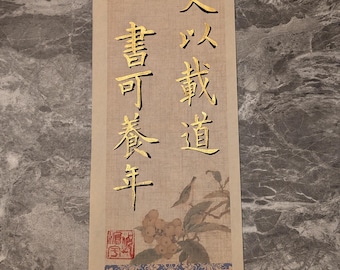 文以載道
書可養年